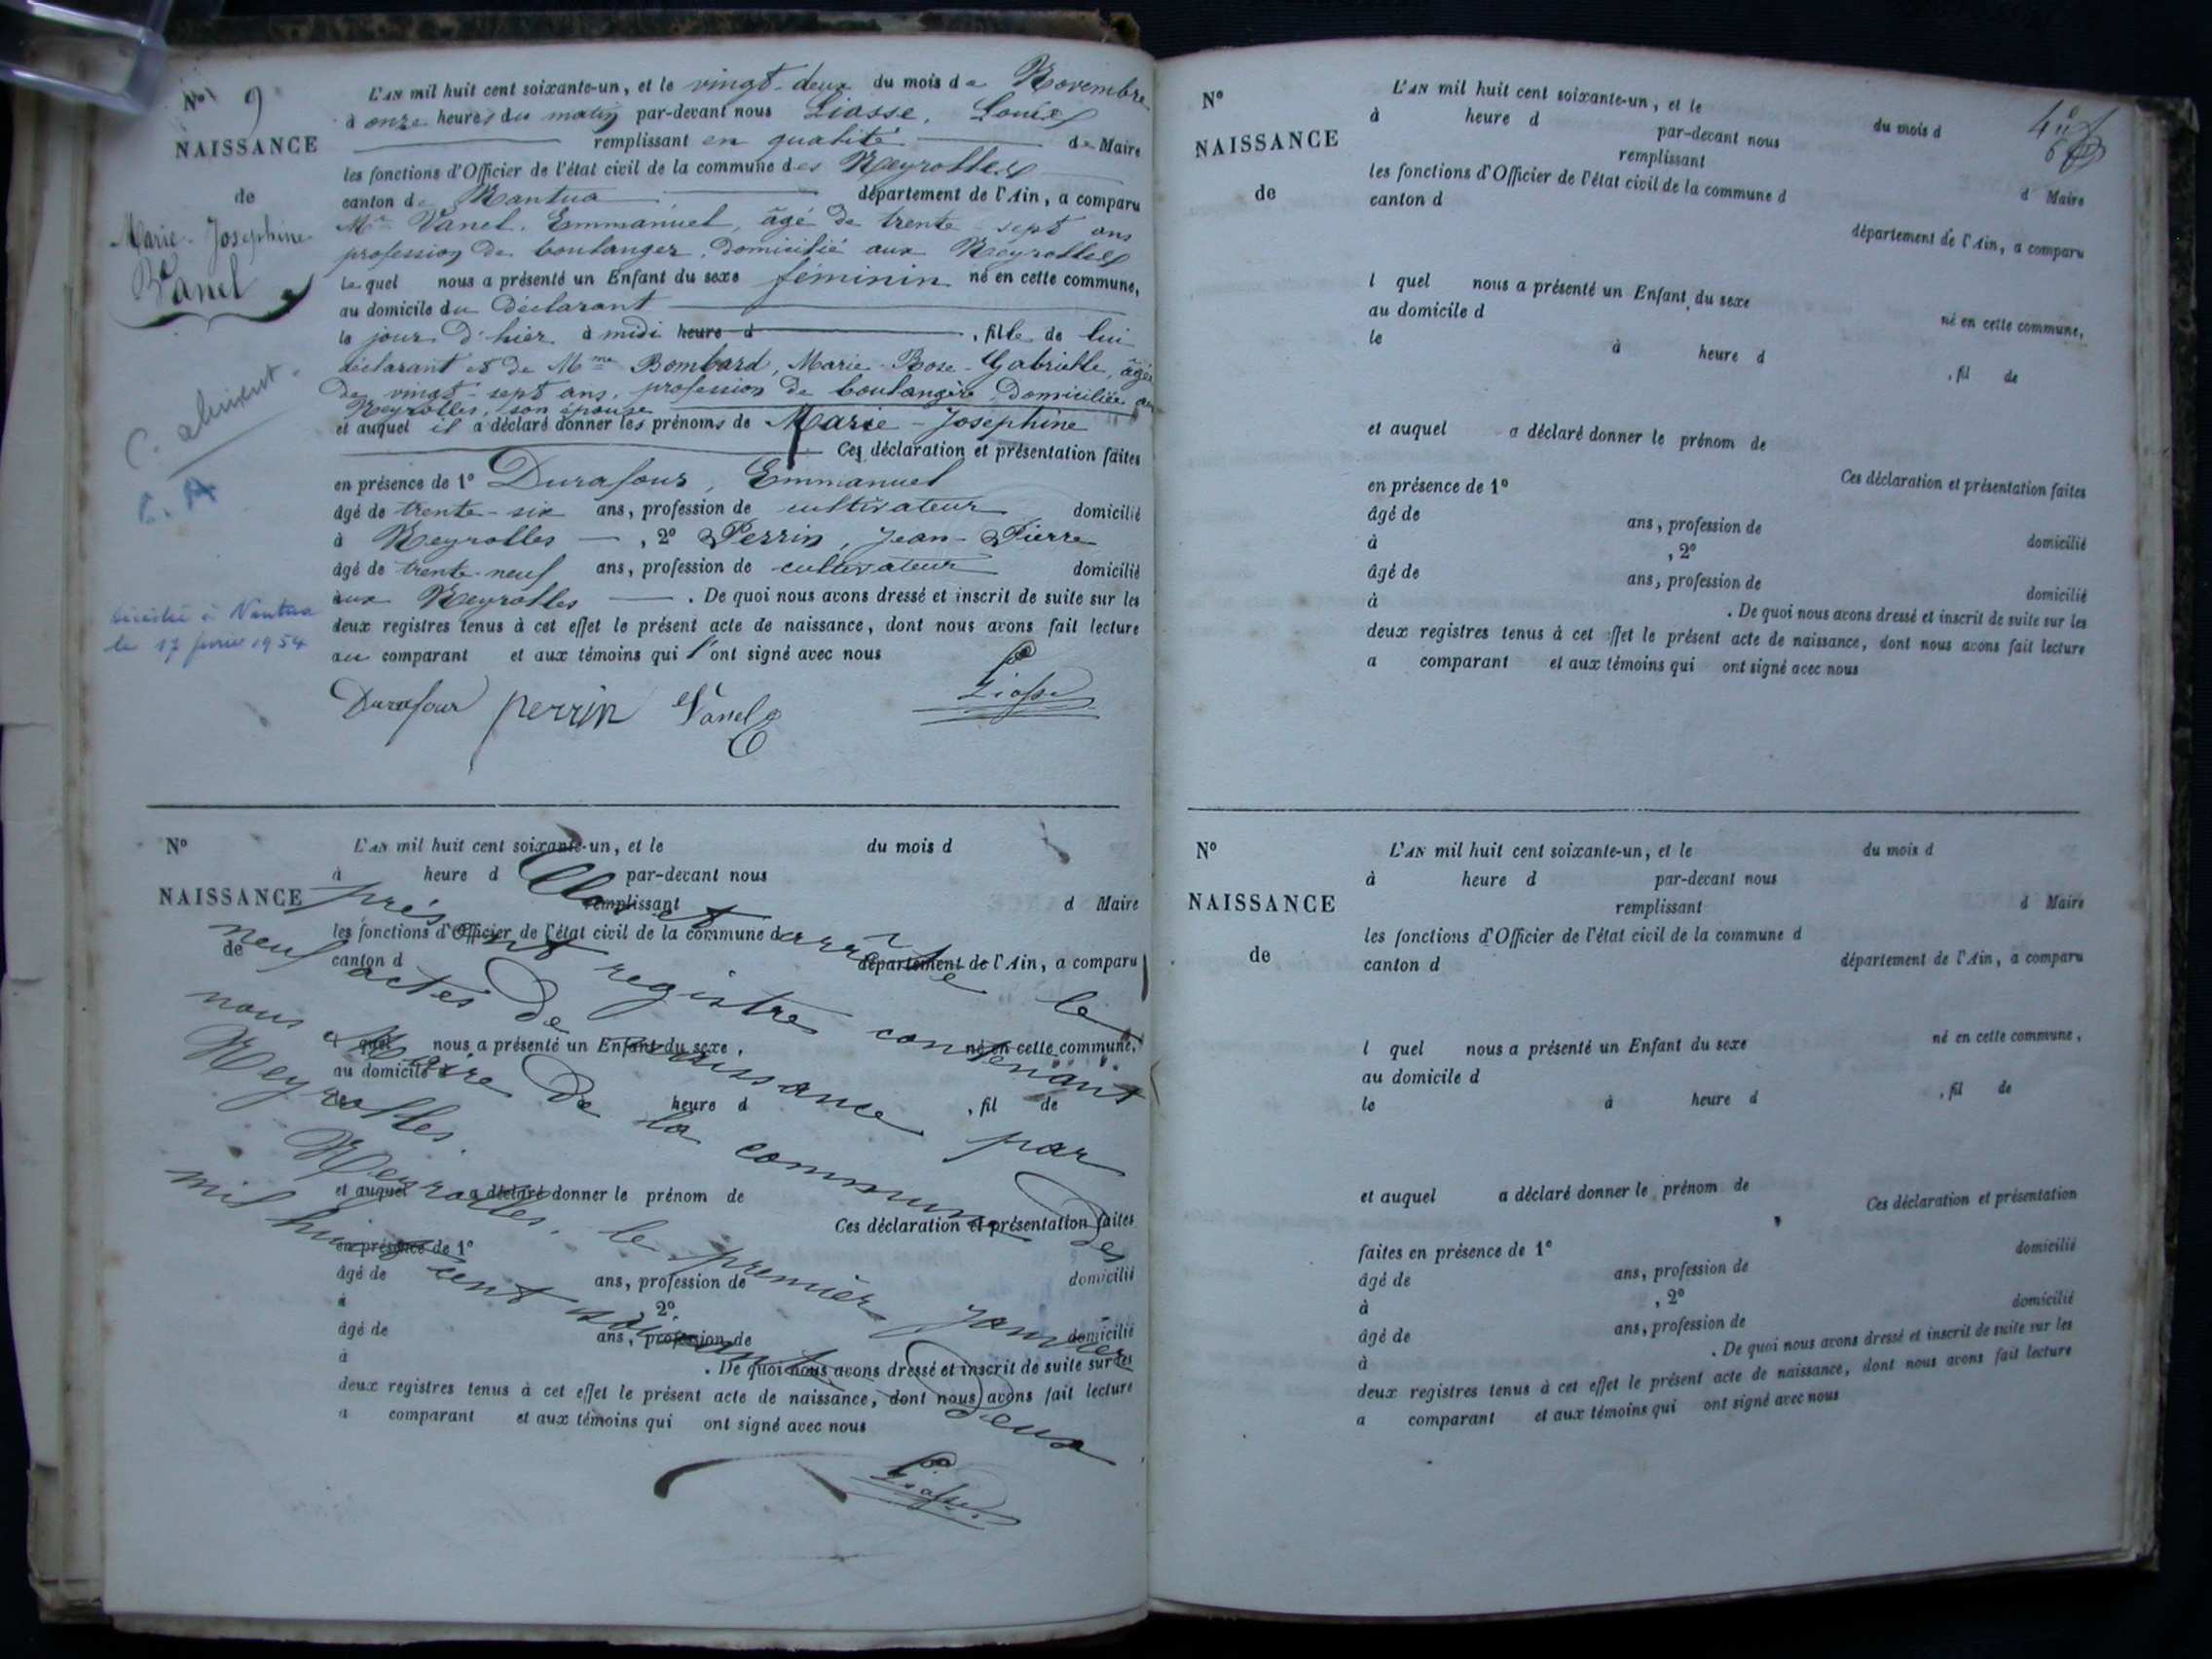 N° 9
NAISSANCE
de
Marie-Joséphine
Vanel
C. A
décédée à Nantua
le 17 1954
L'AN mil huit cent soixante-un, et le vingt-deux du mois de Novembre
à onze heures du matin par-devant nous Liasse, Louis
remplissant en qualité de Maire
les fonctions d'Officier de l'état civil de la commune des Neyrolles
canton de Nantua département de l'Ain, a comparu
Mr Vanel, Emmanuel, âgé de trente-sept ans
profession de boulanger, domicilié aux Neyrolles
Lequel nous a présenté un Enfant du sexe féminin né en cette commune,
au domicile du déclarant
le jour d'hier à midi heure d , fille de lui
déclarant et de Mme Bombard, Marie-Rose-Gabrielle, âgée
de vingt-sept ans, profession de boulangère, domiciliée aux
Neyrolles, son épouse
et auquel il a déclaré donner les prénoms de Marie-Joséphine
Ces déclaration et présentation faites
en présence de 1° Durafour, Emmanuel
âgé de trente-six ans, profession de cultivateur domicilié
à Neyrolles , 2° Perrin, Jean-Pierre
âgé de trente-neuf ans, profession de cultivateur domicilié
aux Neyrolles . De quoi nous avons dressé et inscrit de suite sur les
deux registres tenus à cet effet le présent acte de naissance, dont nous avons fait lecture
au comparant et aux témoins qui l'ont signé avec nous
Durafour perrin Vanel Liasse
N°
NAISSANCE
de
L'AN mil huit cent soixante-un, et le du mois d
à heure d par-devant nous
remplissant d Maire
les fonctions d'Officier de l'état civil de la commune d
canton d département de l'Ain, a comparu
l quel nous a présenté un Enfant du sexe , né en cette commune,
au domicile d
heure d , fil de
et auquel a déclaré donner le prénom de
Ces déclaration et présentation faites
en présence de 1°
âgé de ans, profession de domicilié
à 2°
âgé de ans, profession de domicilié
à . De quoi nous avons dressé et inscrit de suite sur les
deux registres tenus à cet effet le présent acte de naissance, dont nous avons fait lecture
a comparant et aux témoins qui ont signé avec nous
Clos et arrêté le
présent registre contenant
neuf actes de naissance par
nous Maire de la commune des
Neyrolles.
Neyrolles, le premier Janvier
mil huit cent soixante deux
Liasse
N°
NAISSANCE
de
L'AN mil huit cent soixante-un, et le du mois d
à heure d par-devant nous
remplissant d Maire
les fonctions d'Officier de l'état civil de la commune d
canton d département de l'Ain, a comparu
l quel nous a présenté un Enfant du sexe né en cette commune,
au domicile d
le à heure d , fil de
et auquel a déclaré donner le prénom de
Ces déclaration et présentation faites
en présence de 1°
âgé de ans, profession de domicilié
à , 2°
âgé de ans, profession de domicilié
à . De quoi nous avons dressé et inscrit de suite sur les
deux registres tenus à cet effet le présent acte de naissance, dont nous avons fait lecture
a comparant et aux témoins qui ont signé avec nous
N°
NAISSANCE
de
L'AN mil huit cent soixante-un, et le du mois d
à heure d par-devant nous
remplissant d Maire
les fonctions d'Officier de l'état civil de la commune d
canton d département de l'Ain, a comparu
l quel nous a présenté un Enfant du sexe né en cette commune,
au domicile d
le à heure d , fil de
et auquel a déclaré donner le prénom de
Ces déclaration et présentation
faites en présence de 1° domicilié
âgé de ans, profession de
à , 2° domicilié
âgé de ans, profession de
à . De quoi nous avons dressé et inscrit de suite sur les
deux registres tenus à cet effet le présent acte de naissance, dont nous avons fait lecture
a comparant et aux témoins qui ont signé avec nous